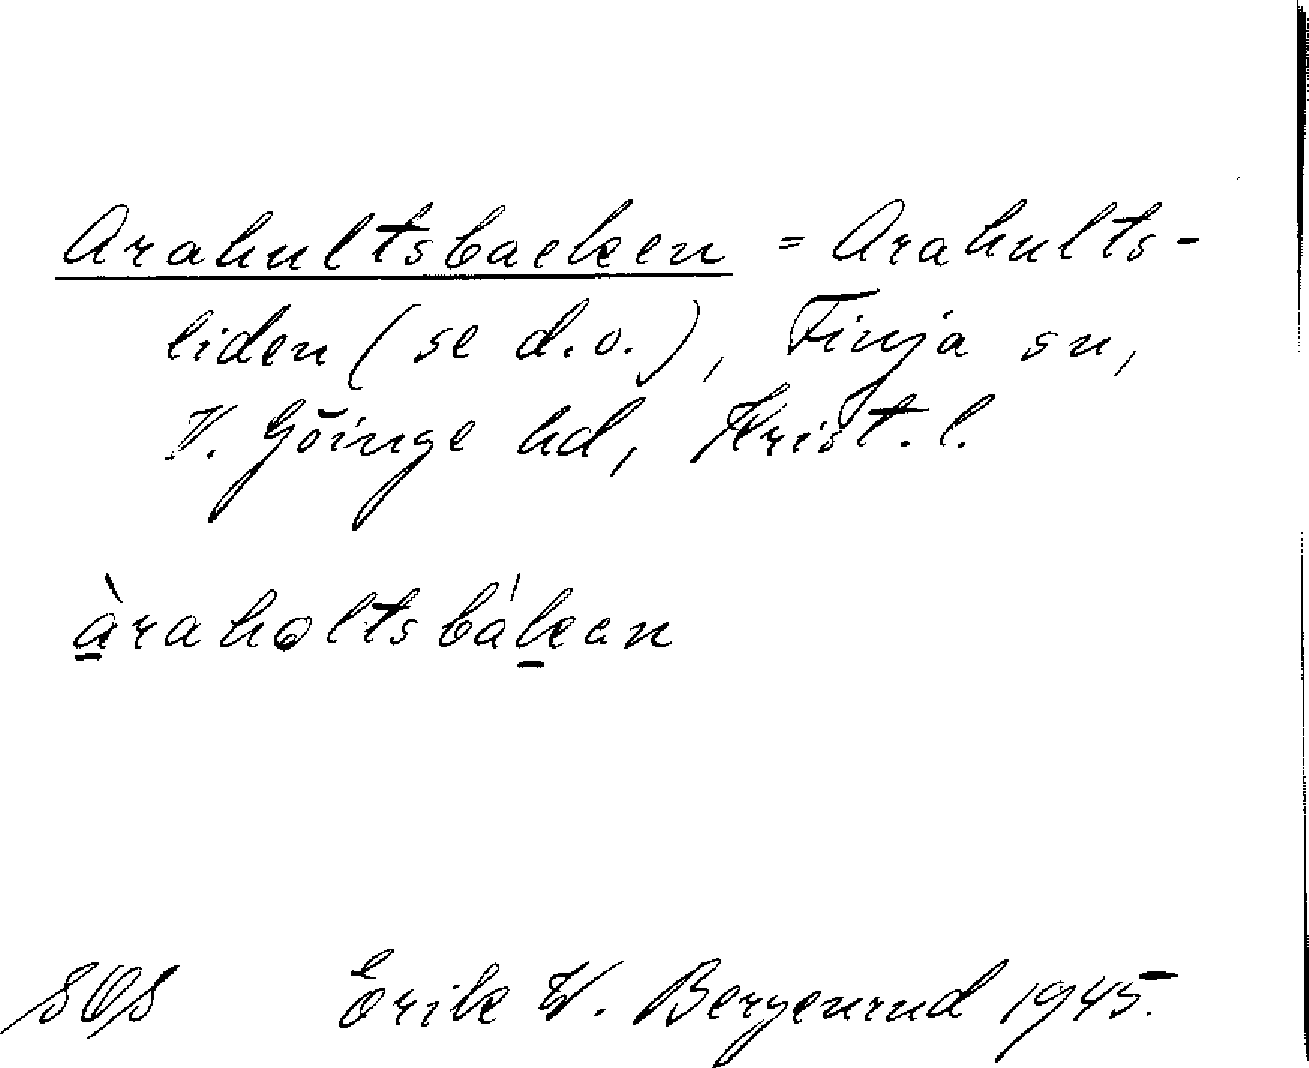 Arahultsbacken = Arahults-
liden (se d.o.), Finja sn,
V. Göinge hd, Krist. l.
àraholtsbákan
Erik W. Bergenrud 1945.